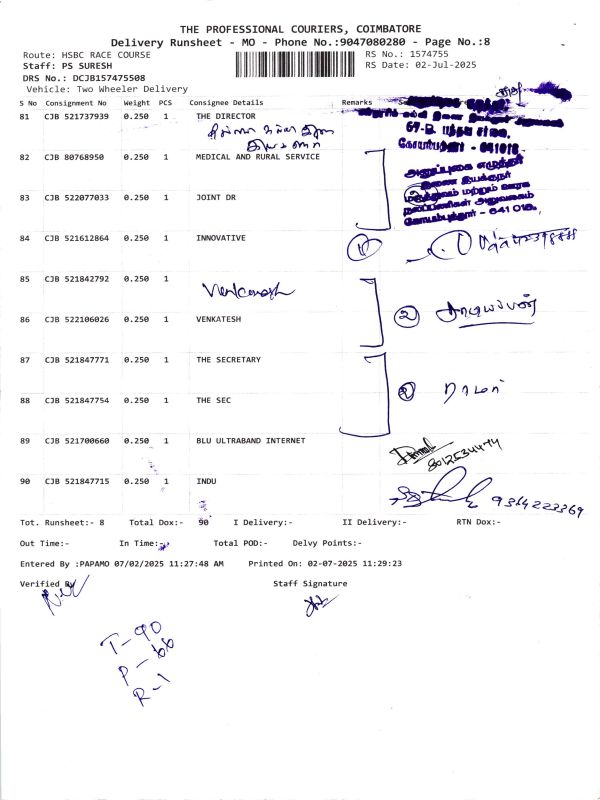 THE PROFESSIONAL COURIERS, COIMBATORE
Delivery Runsheet - MO - Phone No.:9047080280 - Page No.:8
Route: HSBC RACE COURSE
RS No.: 1574755
Staff: PS SURESH
RS Date: 02-Jul-2025
DRS No.: DCJB157475508
Vehicle: Two Wheeler Delivery
S No Consignment No Weight PCS Consignee Details Remarks
81 CJB 521737939 0.250 1 THE DIRECTOR
கோயம்புத்தூர் - 641018
82 CJB 80768950 0.250 1 MEDICAL AND RURAL SERVICE
அனுப்புகை எழுத்தர்
இணை இயக்குநர்
மருத்துவம் மற்றும் ஊரக
நலப்பணிகள் அலுவலகம்
கோயம்புத்தூர் - 641 018.
83 CJB 522077033 0.250 1 JOINT DR
84 CJB 521612864 0.250 1 INNOVATIVE
85 CJB 521842792 0.250 1
Venkatesh
86 CJB 522106026 0.250 1 VENKATESH
87 CJB 521847771 0.250 1 THE SECRETARY
88 CJB 521847754 0.250 1 THE SEC
ராமர்
89 CJB 521700660 0.250 1 BLU ULTRABAND INTERNET
8012534474
90 CJB 521847715 0.250 1 INDU
9364223369
Tot. Runsheet:- 8 Total Dox:- 90 I Delivery:- II Delivery:- RTN Dox:-
Out Time:- In Time:- Total POD:- Delvy Points:-
Entered By :PAPAMO 07/02/2025 11:27:48 AM Printed On: 02-07-2025 11:29:23
Verified By Staff Signature
T-90
P-66
R-1